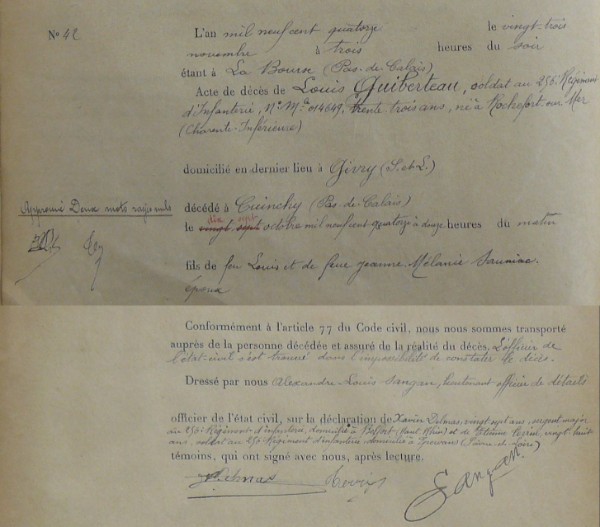 N° 42
L'an mil neuf cent quatorze le vingt-trois
novembre à trois heures du soir
étant à La Bourse (Pas-de-Calais)
Acte de décès de Louis Guiberteau, soldat au 256e Régiment
d'Infanterie, N° Mle 014649, trente trois ans, né à Rochefort sur Mer
(Charente-Inférieure)
domicilié en dernier lieu à Givry (S. et L.)
Approuvé Deux mots rayés nuls
décédé à Cuinchy (Pas-de-Calais)
dix sept
le vingt sept octobre mil neuf cent quatorze à douze heures du matin
fils de feu Louis et de feue Jeanne Mélanie Sauniac.
époux
Conformément à l'article 77 du Code civil, nous nous sommes transporté
auprès de la personne décédée et assuré de la réalité du décès. L'officier de
l'état-civil s'est trouvé dans l'impossibilité de constater le décès.
Dressé par nous Alexandre Louis Sangan, lieutenant officier de détails
officier de l'état civil, sur la déclaration de Xavier Delmas, vingt sept ans, sergent major
du 256e Régiment d'infanterie, domicilié à Belfort (Haut Rhin) et de vingt huit
ans, soldat au 256e Régiment d'infanterie domicilié à
témoins, qui ont signé avec nous, après lecture.
Delmas
Sangan